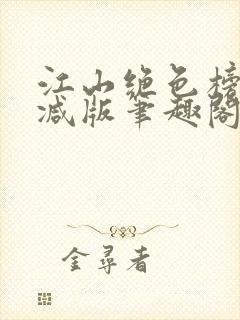 江山绝色榜
减版笔趣阁
金尋者